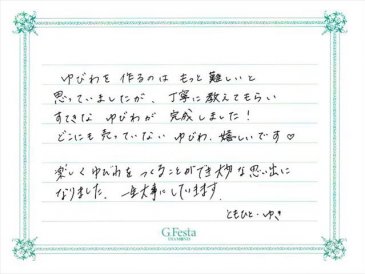 ゆびわを作るのは もっと難しいと
思っていましたが、丁寧に教えてもらい
すてきな ゆびわが 完成しました!
どこにも売っていない ゆびわ、嬉しいです♡
楽しくゆびわを つくることができ 大切な思い出に
なりました。一生大事にしています。
ともひと・ゆき
G.Festa
DIAMOND